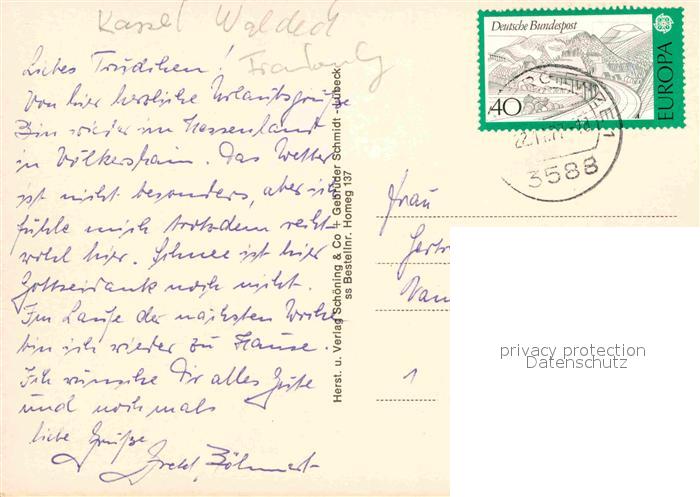 Kassel Waldeck
Liebes Trudchen!
Von hier herzliche Urlaubsgrüße
Bin wieder im Hessenland
in Völkershain. Das Wetter
ist nicht besonders, aber ich
fühle mich trotzdem recht
wohl hier. Schnee ist hier
Gottseidank noch nicht.
Im Laufe der nächsten Woche
bin ich wieder zu Hause.
Ich wünsche Dir alles Gute
und nochmals
liebe Grüße
Herst. u. Verlag Schöning & Co + Gebrüder Schmidt - Lübeck
ss Bestellnr. Homeg 137
Deutsche Bundespost
40
EUROPA
3588
Frau
1
privacy protection
Datenschutz